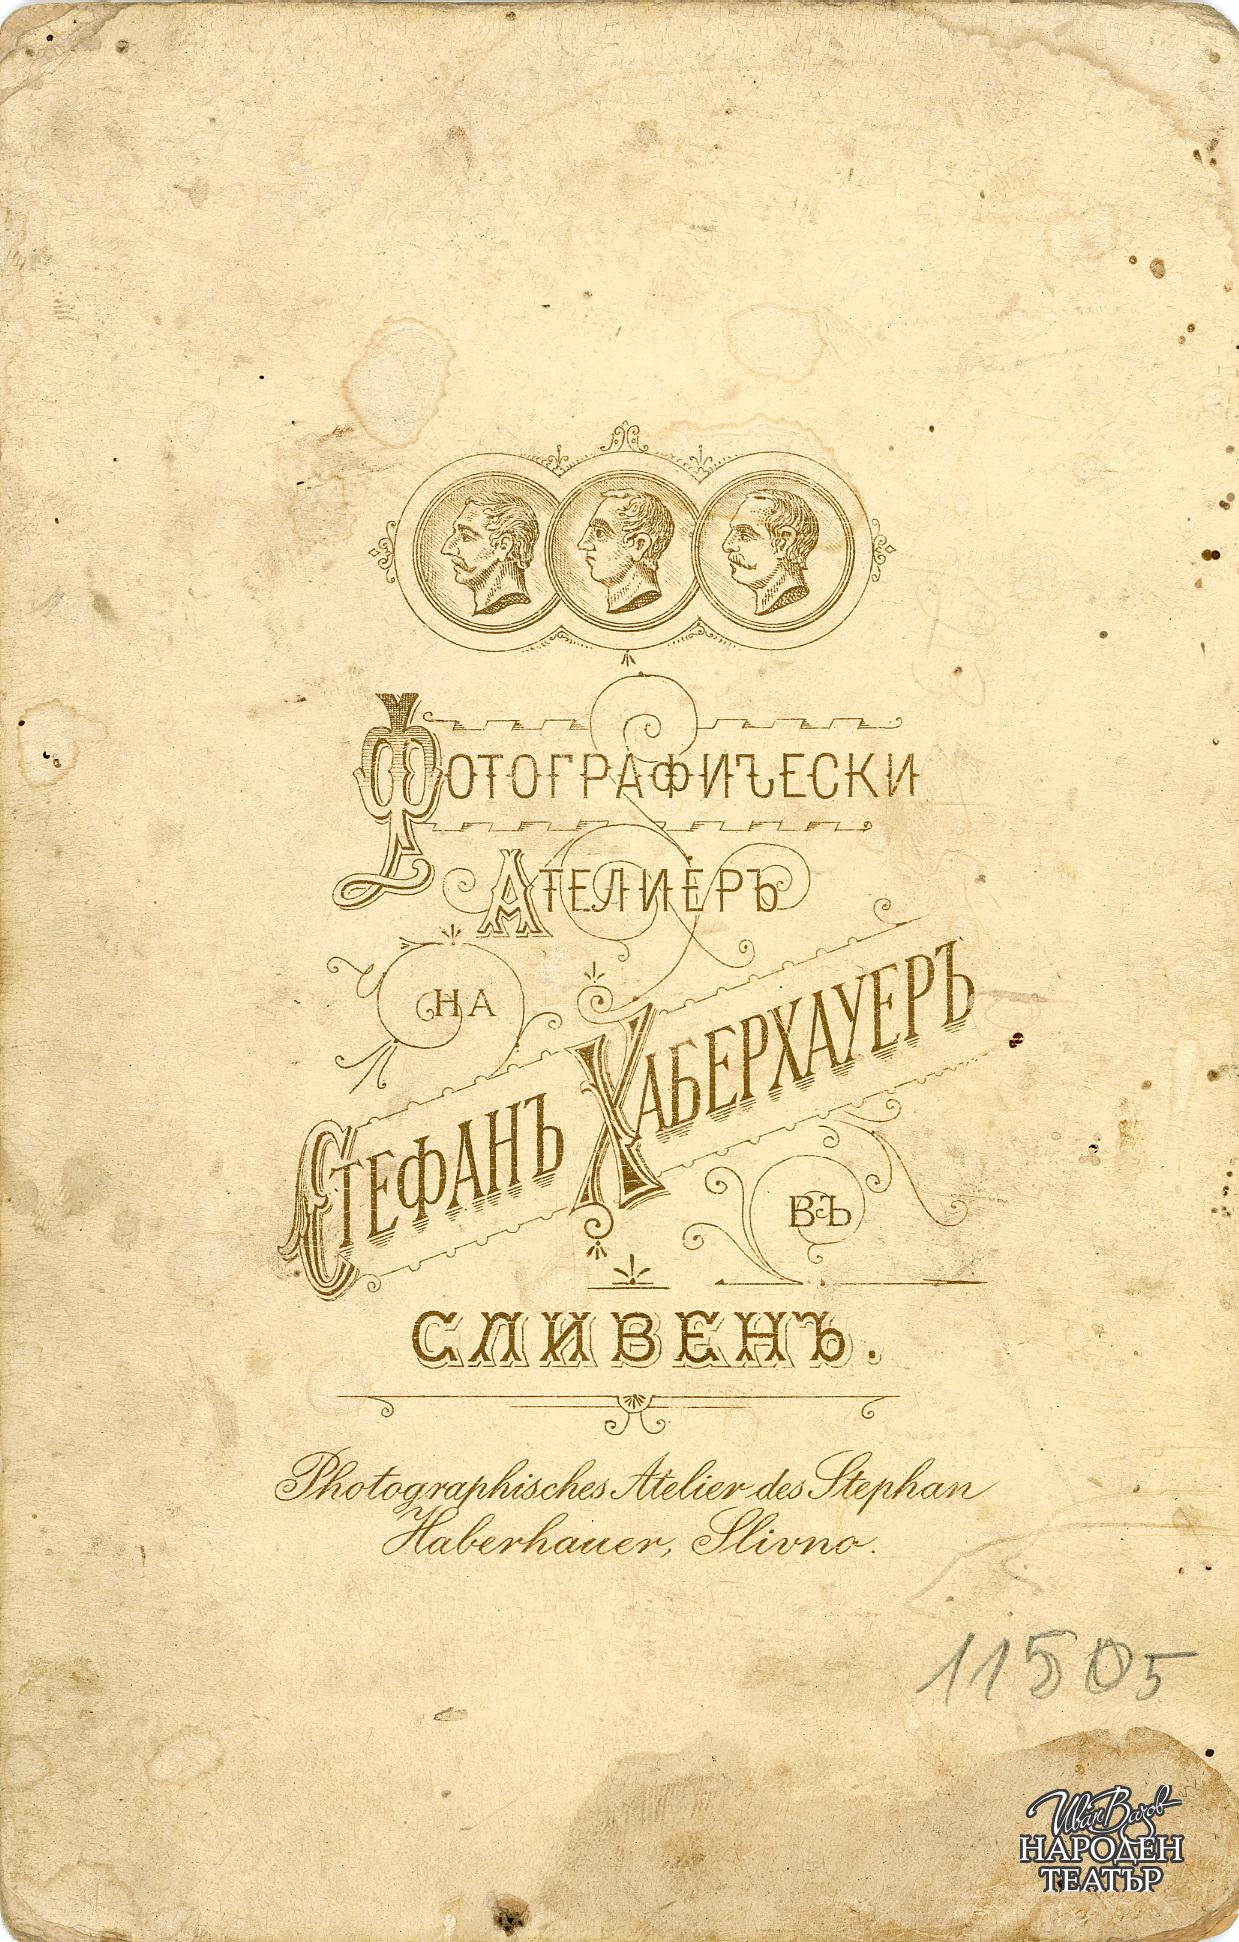 Фотографически
Ателиеръ
на
Стефанъ Хаберхауеръ
въ
Сливенъ.
Photographisches Atelier des Stephan
Haberhauer, Slivno.
11505
Иван Вазов
НАРОДЕН
ТЕАТЪР